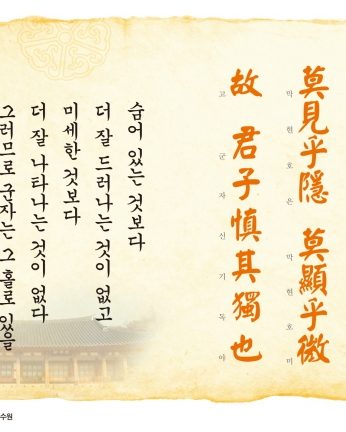 莫見乎隱 莫顯乎微
막현호은 막현호미
故 君子愼其獨也
고 군자신기독야
숨어 있는 것보다
더 잘 드러나는 것이 없고
미세한 것보다
더 잘 나타나는 것이 없다
그러므로 군자는 그 홀로 있을
수원